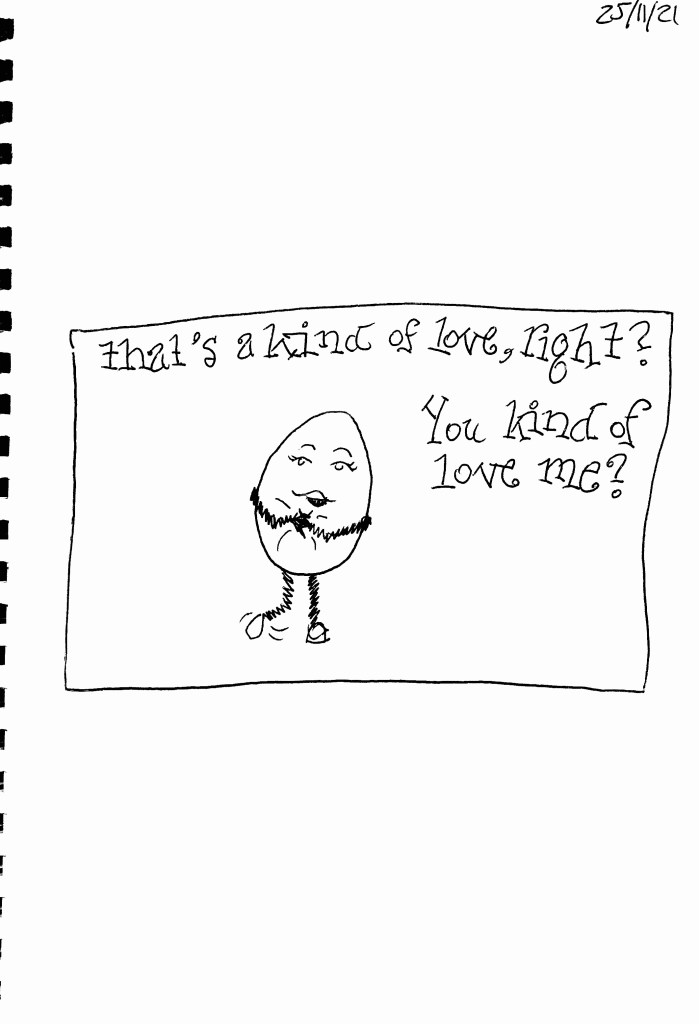 25/11/21
that's a kind of love, right?
You kind of
love me?